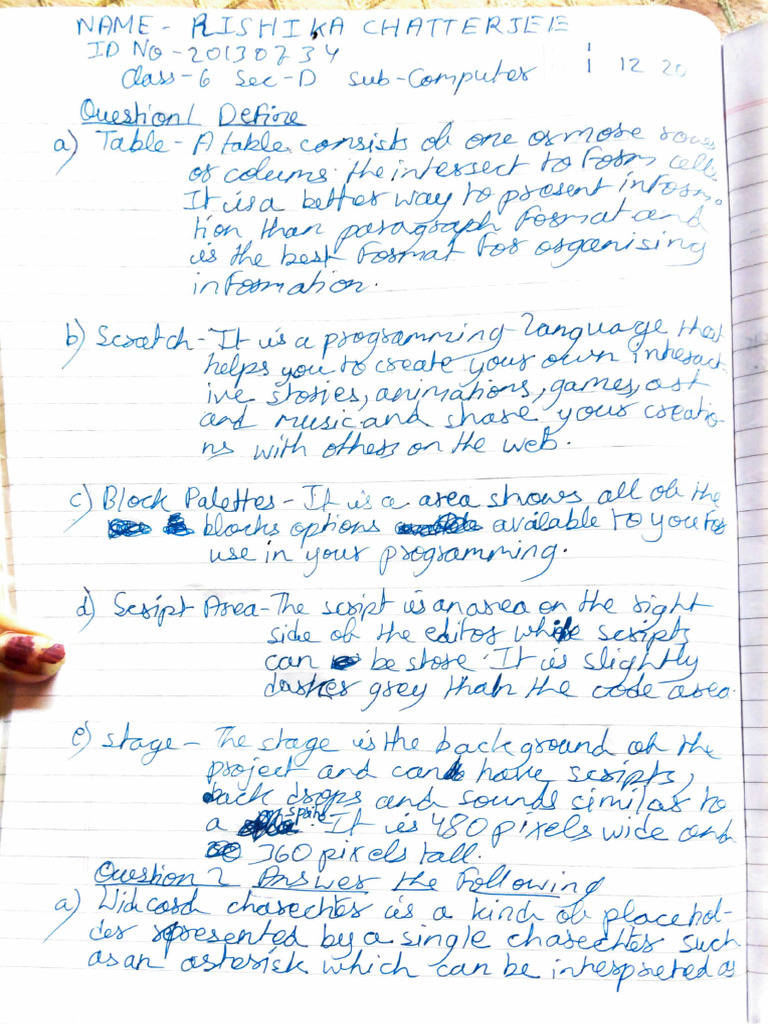 NAME - RISHIKA CHATTERJEE
ID No - 20130734
1 12 20
Class-6 Sec-D Sub-Computer
Question 1 Define
a) Table - A table consists of one or more rows
or colums. the intersect to form cells
It is a better way to present informa-
tion than paragraph format and
is the best format for organising
information.
b) Scratch - It is a programming language that
helps you to create your own interact-
ive stories, animations, games, art
and music and share your creatio-
ns with others on the web.
c) Block Palettes - It is a area shows all of the
blocks options available to you for
use in your programming.
d) Script Area - The script is an area on the right
side of the editor while scripts
can be store. It is slightly
darker grey than the code area.
e) Stage - The stage is the background of the
project and can have scripts,
back drops and sounds similar to
a spirite. It is 480 pixels wide and
360 pixels tall.
Question 2 Answer the Following
a) Widcard charecters is a kind of placehol-
der represented by a single charecter such
as an asterisk which can be interpreted as